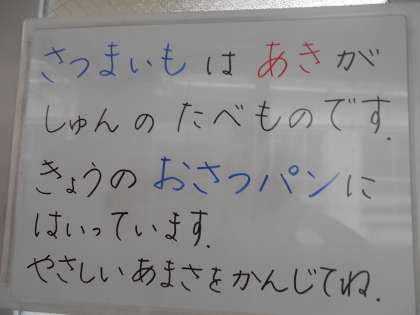 さつまいも は あき が
しゅん の たべものです.
きょうの おさつパン に
はいっています.
やさしいあまさをかんじてね.